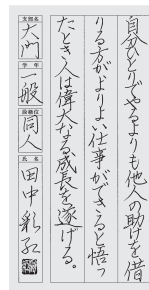 自分ひとりでやるよりも他人の助けを借
りる方がよりよい仕事ができると悟っ
たとき人は偉大なる成長を遂げる。
支部名
大門
学年
一般
段級位
同人
氏名
田中彩